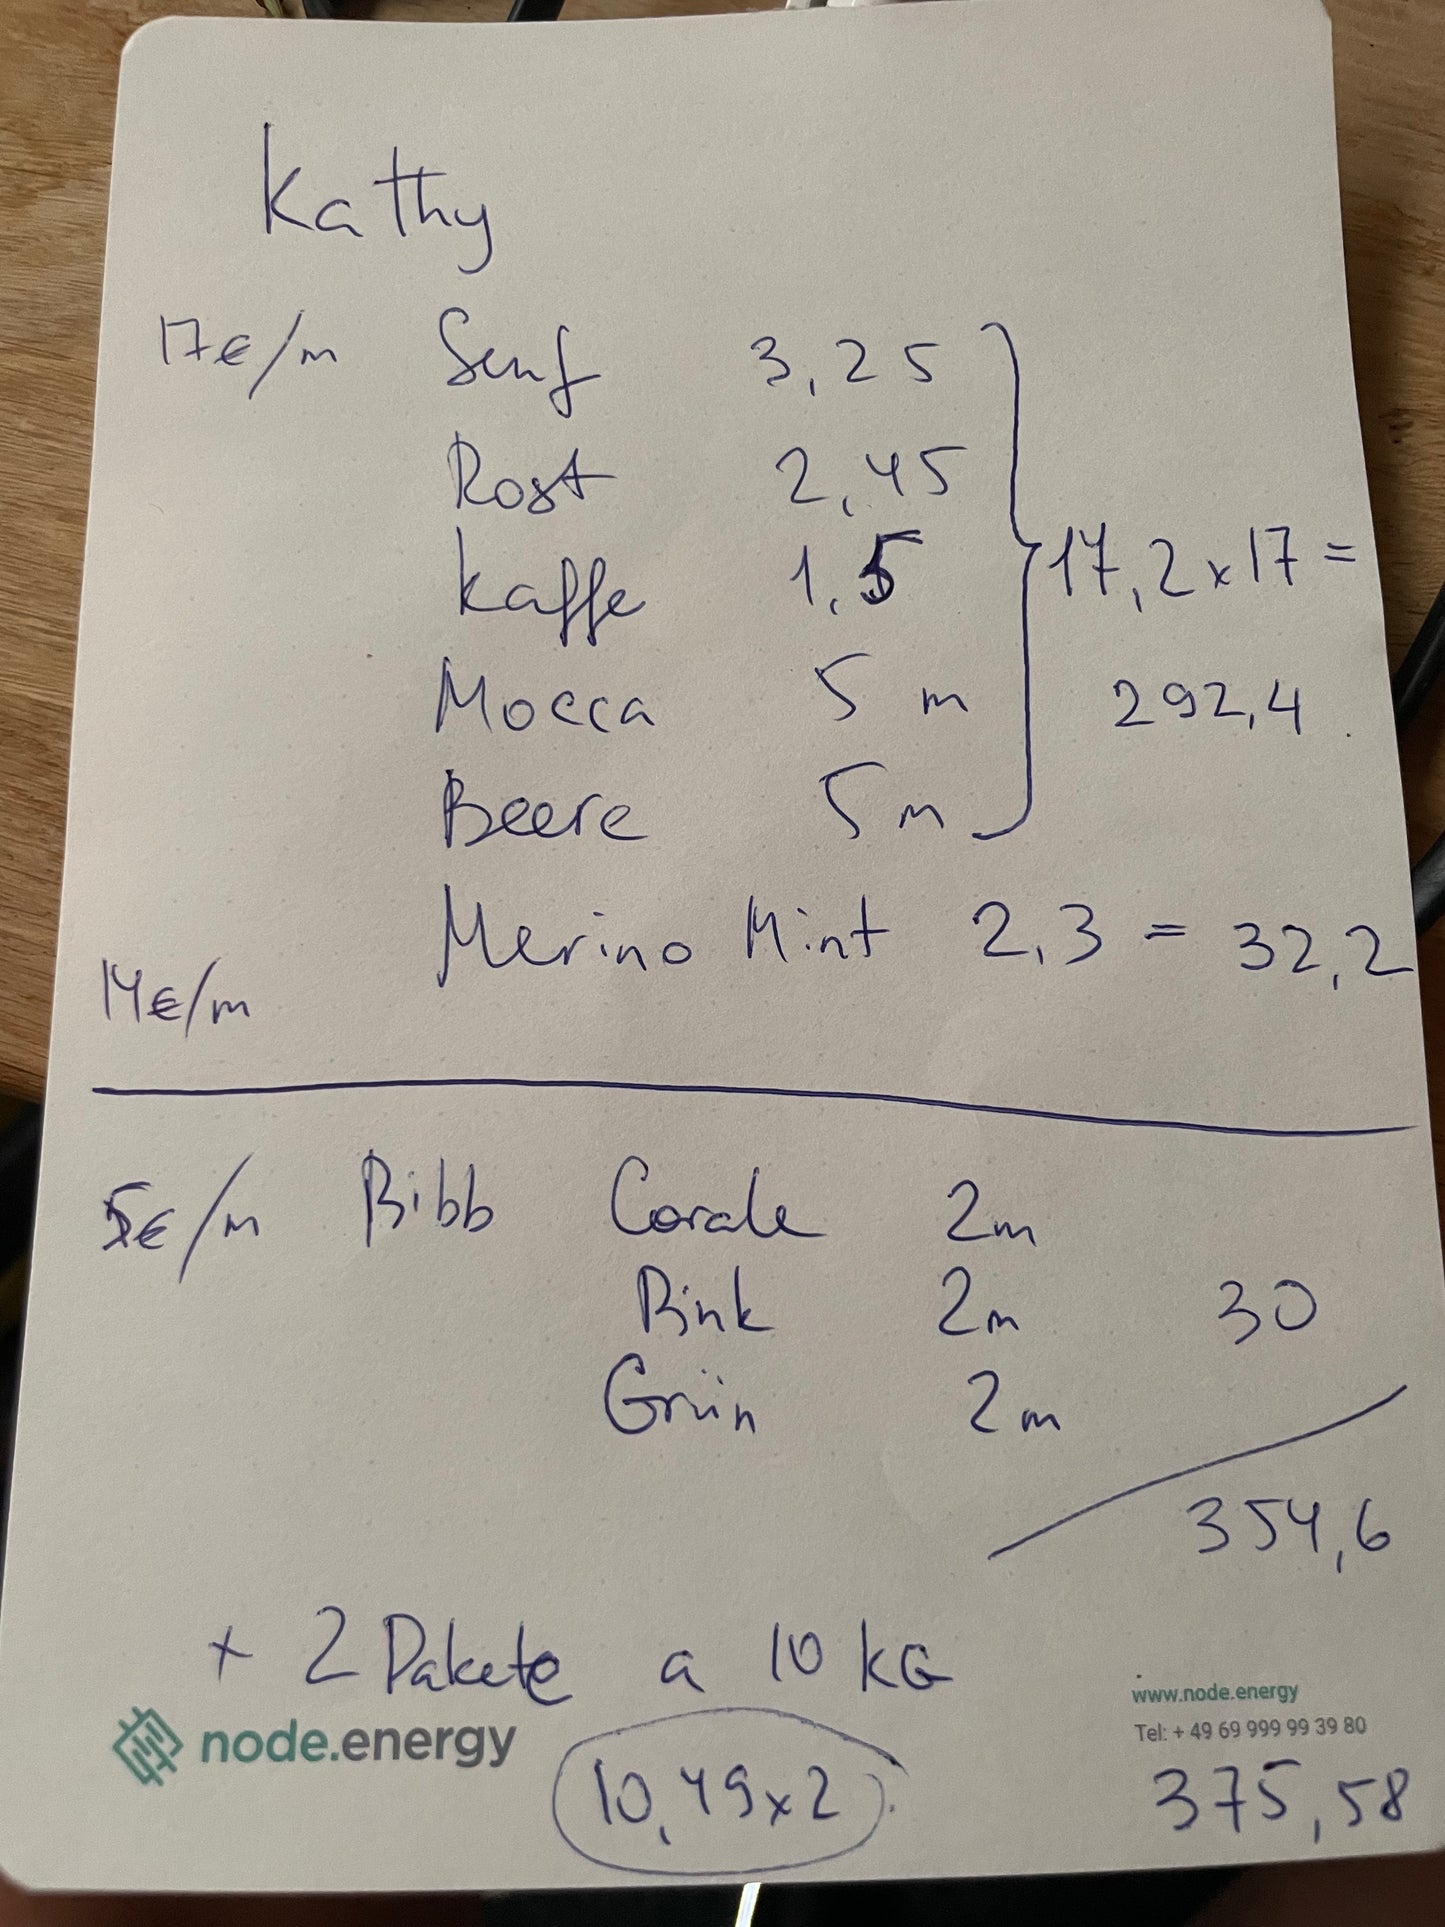 Kathy
17€/m Senf 3,25
Rost 2,45
Kaffe 1,5
17,2 x 17 =
Mocca 5 m
292,4
Beere 5 m
Merino Mint 2,3 = 32,2
14€/m
5€/m Bibb Corale 2m
Pink 2m 30
Grün 2m
354,6
+ 2 Pakete a 10 KG
www.node.energy
node.energy
Tel: + 49 69 999 99 39 80
10,49 x 2
375,58